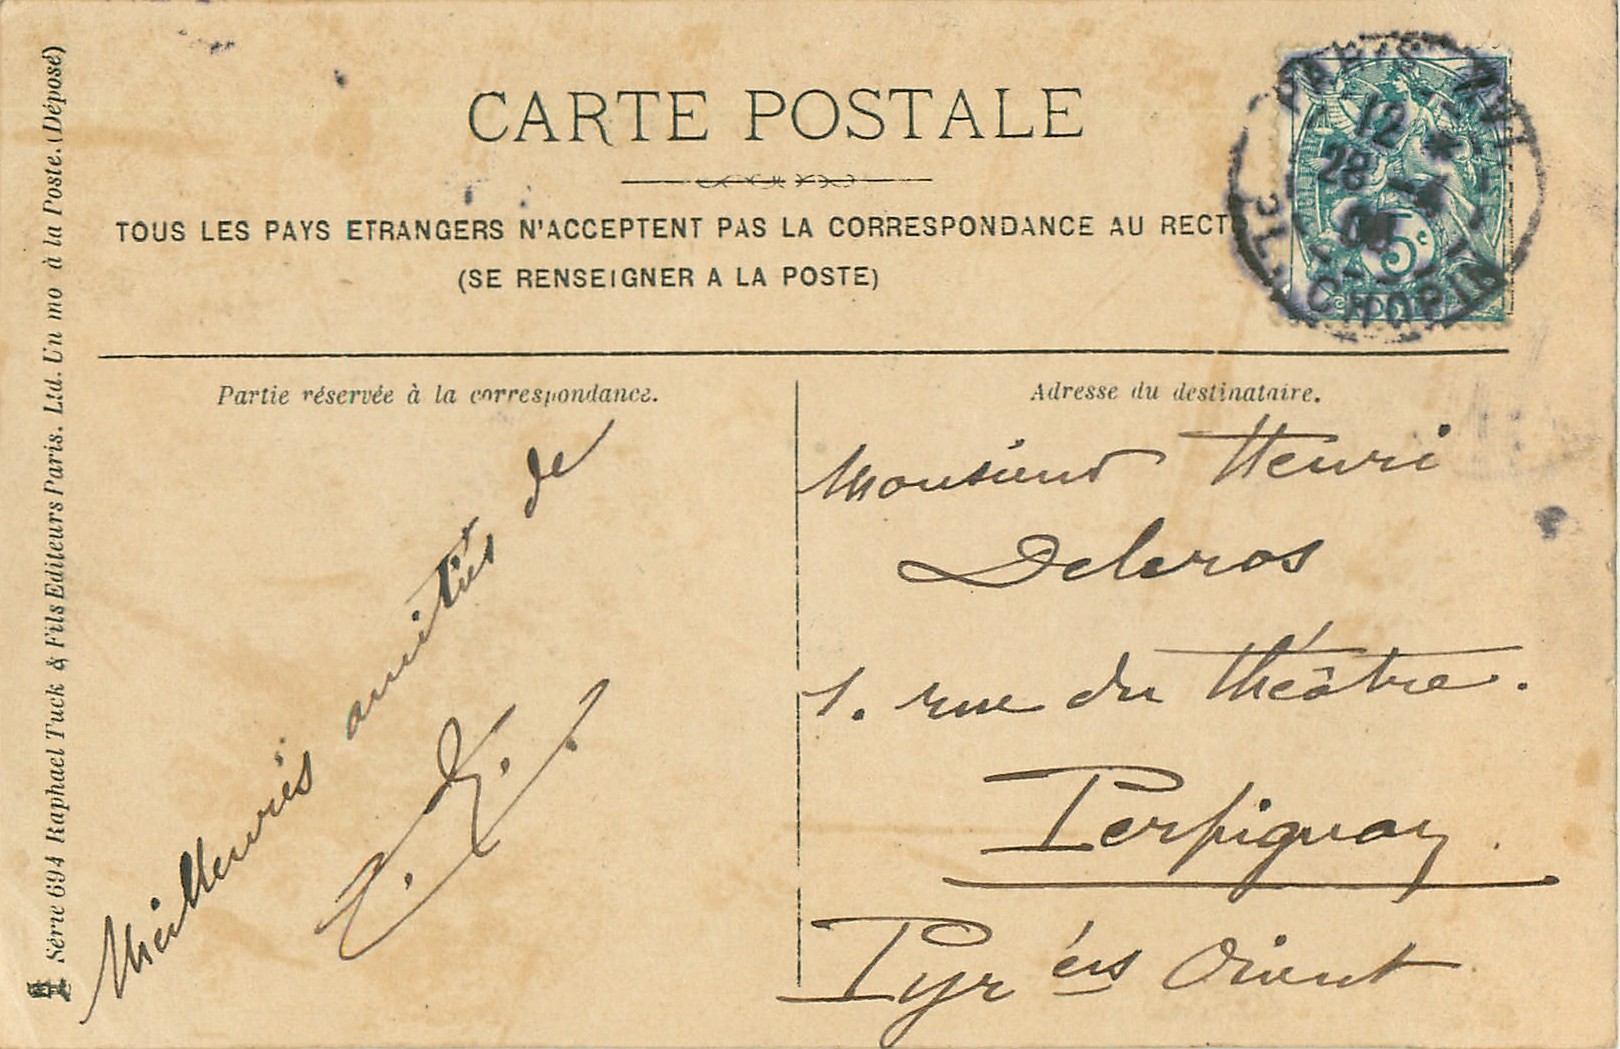 CARTE POSTALE
TOUS LES PAYS ETRANGERS N'ACCEPTENT PAS LA CORRESPONDANCE AU RECTO
(SE RENSEIGNER A LA POSTE)
PARIS
12 *
28
5c
CHOPIN
Série 694 Raphael Tuck & Fils Editeurs Paris. Ltd. Un mo à la Poste. (Déposé)
Partie réservée à la correspondance.
Meilleures amitiés de
Adresse du destinataire.
Monsieur Henri
Delcros
1. rue du théâtre.
Perpignan
Pyr ées Orient